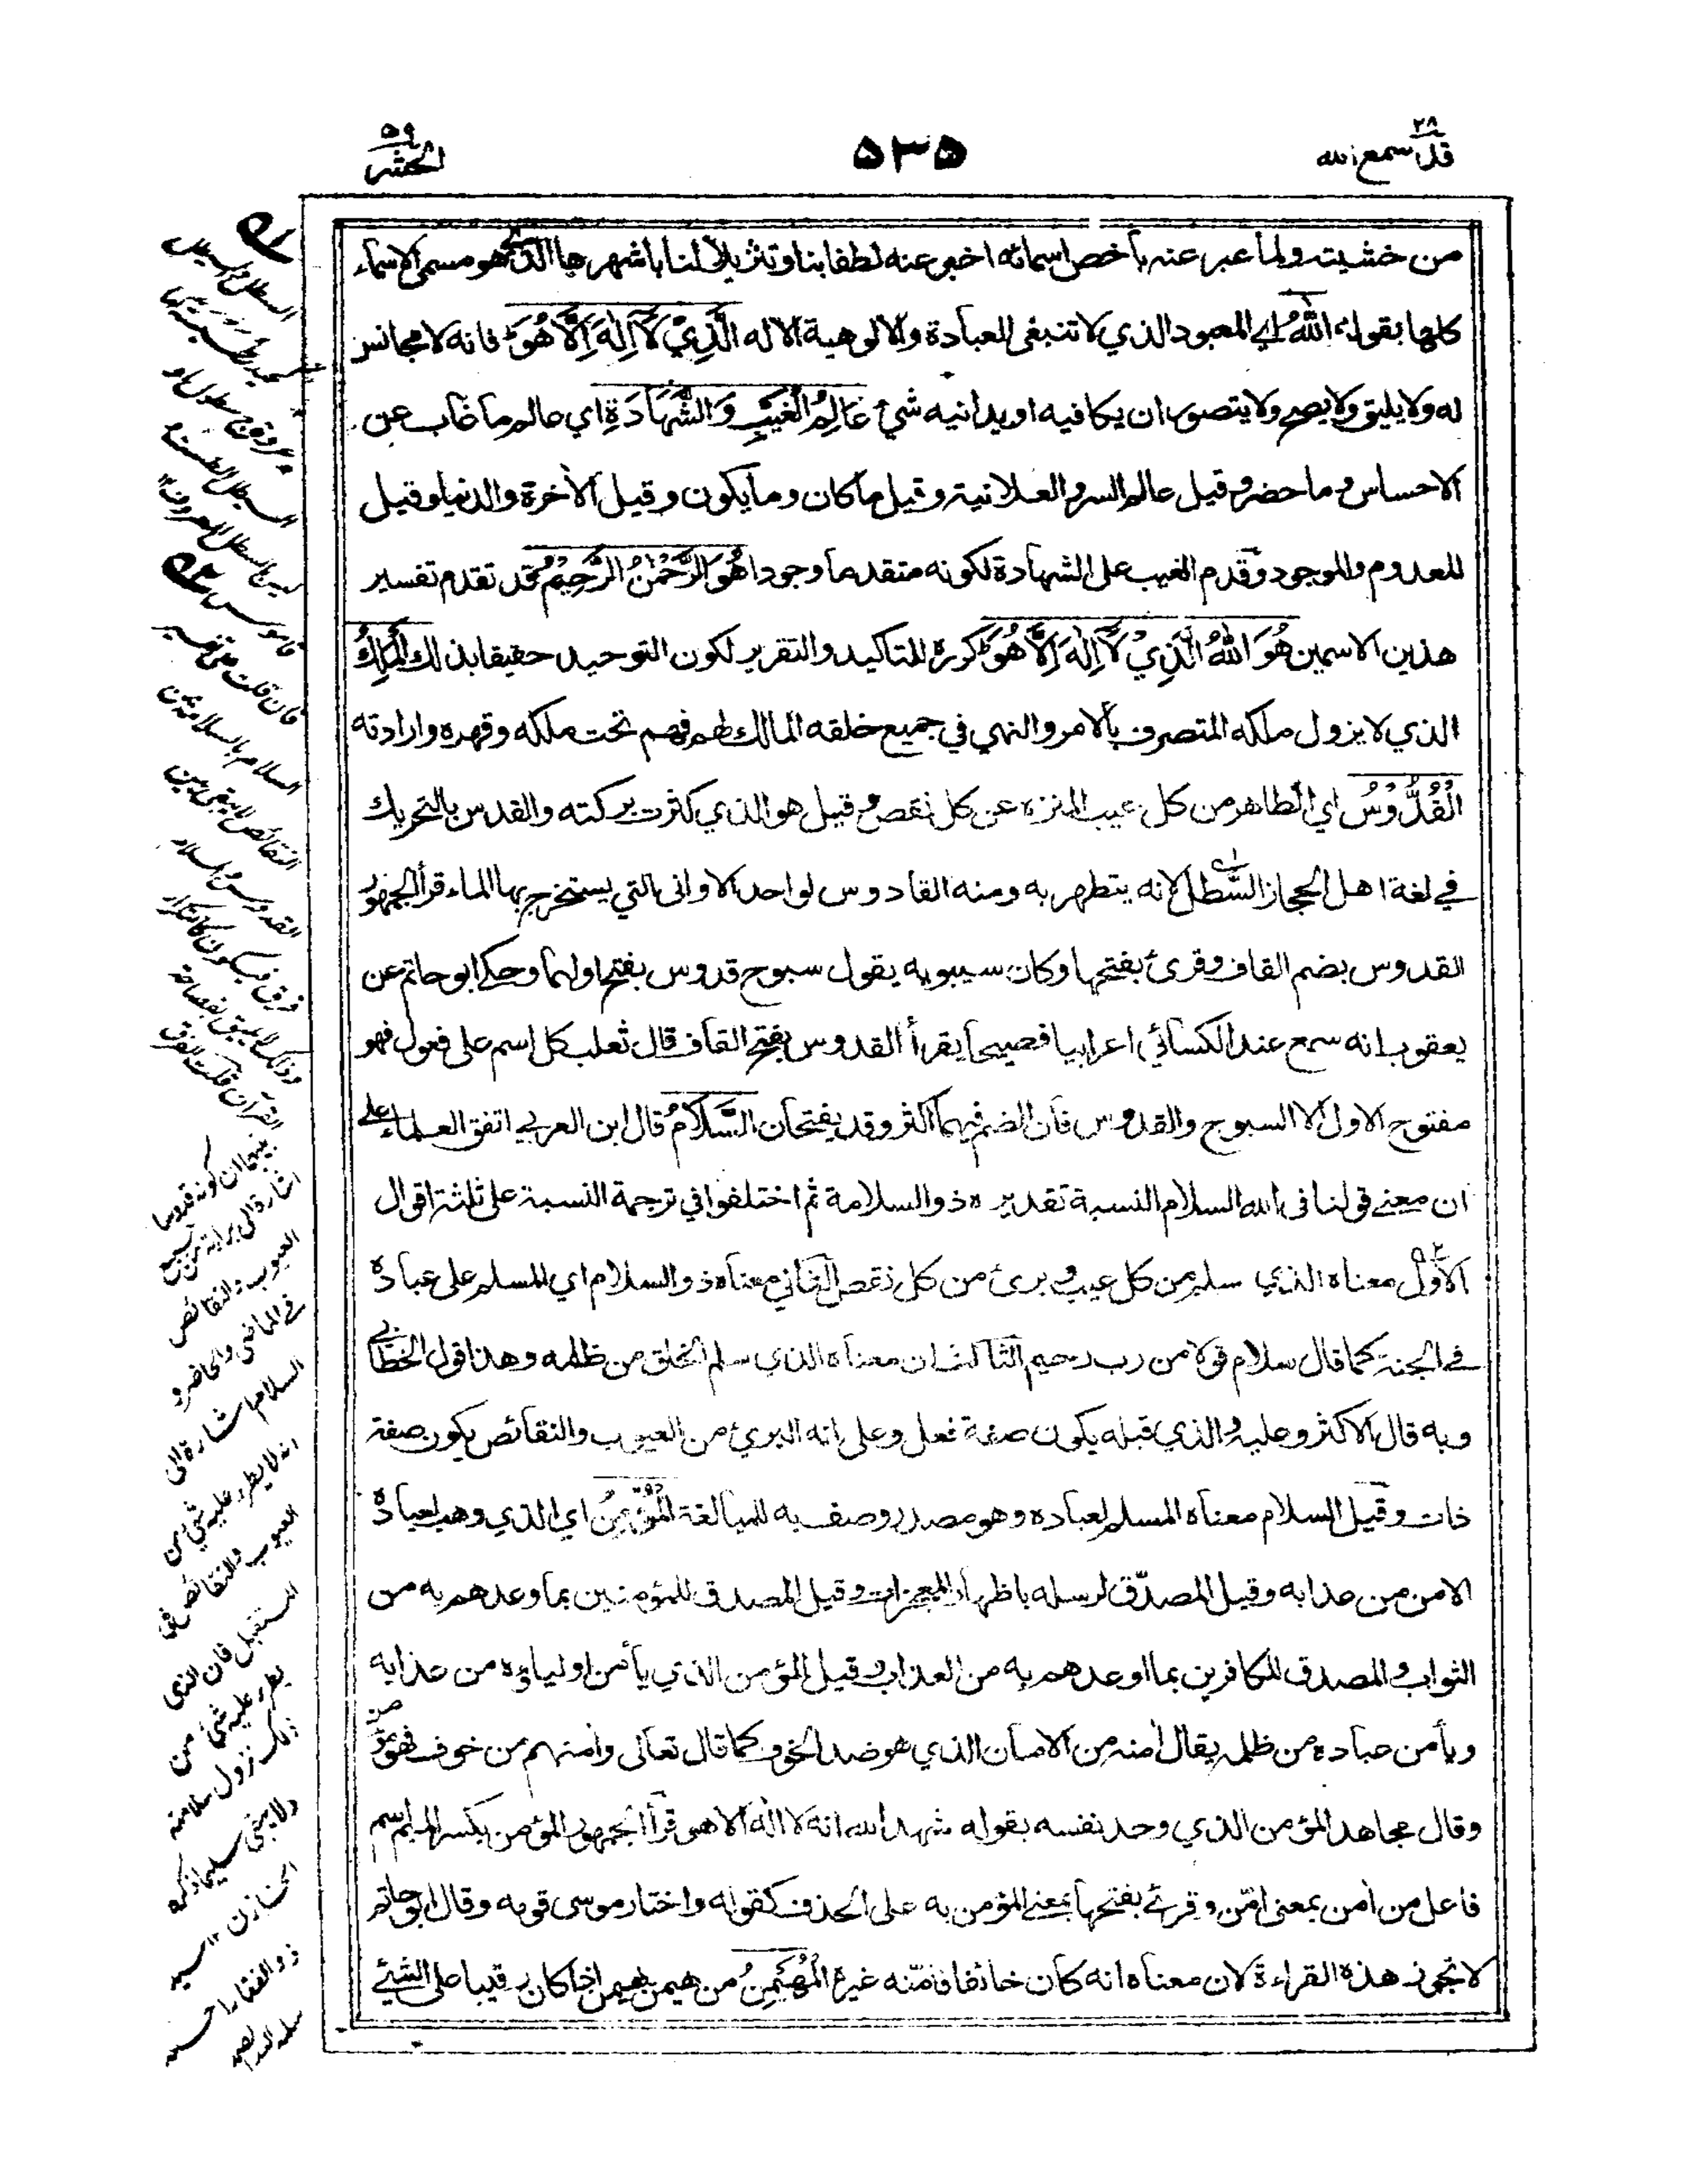 ٢٨
قد سمع الله
٥٣٥
٥٩
الحشر
من خشيته ولما عبر عنه بأخص اسمائه اخبر عنه لطفا بنا وتنزيلا لنا بأشهرها الذي هو مسمى الاسماء
كلها بقوله اللهُ اي المعبود الذي لا تنبغي العبادة والالوهية الا له الَّذِيْ لَآ اِلٰهَ اِلَّا هُوَ فانه لا مجانس
له ولا يليق ولا يصح ولا يتصور ان يكافيه او يدانيه شئ عَالِمُ الْغَيْبِ وَالشَّهَادَةِ اي عالم ما غاب عن
الاحساس وما حضر وقيل عالم السر والعلانية وقيل ما كان وما يكون وقيل الأخرة والدنيا وقيل
المعدوم والموجود وقدم الغيب على الشهادة لكونه متقدما وجودا هُوَ الرَّحْمٰنُ الرَّحِيْمُ قد تقدم تفسير
هذين الاسمين هُوَ اللهُ الَّذِيْ لَآ اِلٰهَ اِلَّا هُوَ كرره للتاكيد والتقرير لكون التوحيد حقيقا بذلك اَلْمَلِكُ
الذي لا يزول ملكه المتصرف بالامر والنهي في جميع خلقه المالك لهم فهم تحت ملكه وقهره وارادته
الْقُدُّوْسُ اي الطاهر من كل عيب المنزه عن كل نقص وقيل هو الذي كثرت بركته والقدس بالتحريك
في لغة اهل الحجاز السَّطل لانه يتطهر به ومنه القادوس لواحد الاوانى التي يستخرج بها الماء قرأ الجمهور
القدوس بضم القاف وقرئ بفتحها وكان سيبويه يقول سبوح قدوس بفتح اولهما وحكى ابو حاتم عن
يعقوب انه سمع عند الكسائي اعرابيا فصيحا يقرأ القدوس بفتح القاف قال ثعلب كل اسم على فعول فهو
مفتوح الاول الا السبوح والقدوس فان الضم فيهما اكثر وقد يفتحان السَّلَامُ قال ابن العربي اتفق العلماء على
ان معنى قولنا في الله السلام النسبة تقديره ذو السلامة ثم اختلفوا في ترجمة النسبة على ثلثة اقوال
الاول معناه الذي سلم من كل عيب وبرئ من كل نقص الثاني معناه ذو السلام اي المسلم على عباده
في الجنة كما قال سلام قولا من رب رحيم الثالث ان معناه الذي سلم الخلق من ظلمه وهذا قول الخطابي
وبه قال الاكثر وعليه والذي قبله يكون صفة فعل وعلى انه البرئ من العيوب والنقائص يكون صفة
ذات وقيل السلام معناه المسلم لعباده وهو مصدر وصف به للمبالغة الْمُؤْمِنُ اي الذي وهب لعباده
الامن من عذابه وقيل المصدّق لرسله باظهار المعجزات وقيل المصدق للمؤمنين بما وعدهم به من
الثواب والمصدق للكافرين بما اوعدهم به من العذاب وقيل المؤمن الذي يأمن اولياؤه من عذابه
ويأمن عباده من ظلمه يقال أمنه من الامان الذي هو ضد الخوف كما قال تعالى وأمنهم من خوف فهو مؤمن
وقال مجاهد المؤمن الذي وحد نفسه بقوله شهد الله انه لا اله الا هو قرأ الجمهور المؤمن بكسر الميم اسم
فاعل من أمن بمعنى امّن وقرئ بفتحها بمعنى المؤمن به على الحذف كقوله واختار موسى قومه وقال ابو حاتم
لا تجوز هذه القراءة لان معناه انه كان خائفا فامّنه غيره الْمُهَيْمِنُ من هيمن يهيمن اذا كان رقيبا على الشيئ
فان قلت
السلام بالسلامة من
النقائص لا يبقى بين
القدوس والسلام
فرق فيكون كالتكرار
وذلك لا يليق بفصاحة
القرآن قلت الفرق
بينهما ان كونه قدوسا
اشارة الى براءته من
العيوب والنقائص
في الماضي والحاضر و
السلام اشارة الى
انه لا يطرء عليه شيء من
العيوب والنقائص في
المستقبل فان الذي
يطرء عليه شيء من
ذلك تزول سلامته
ولا يبقى سليما ذكره
الخازن ١٢ سيد
ذو الفقار احمد